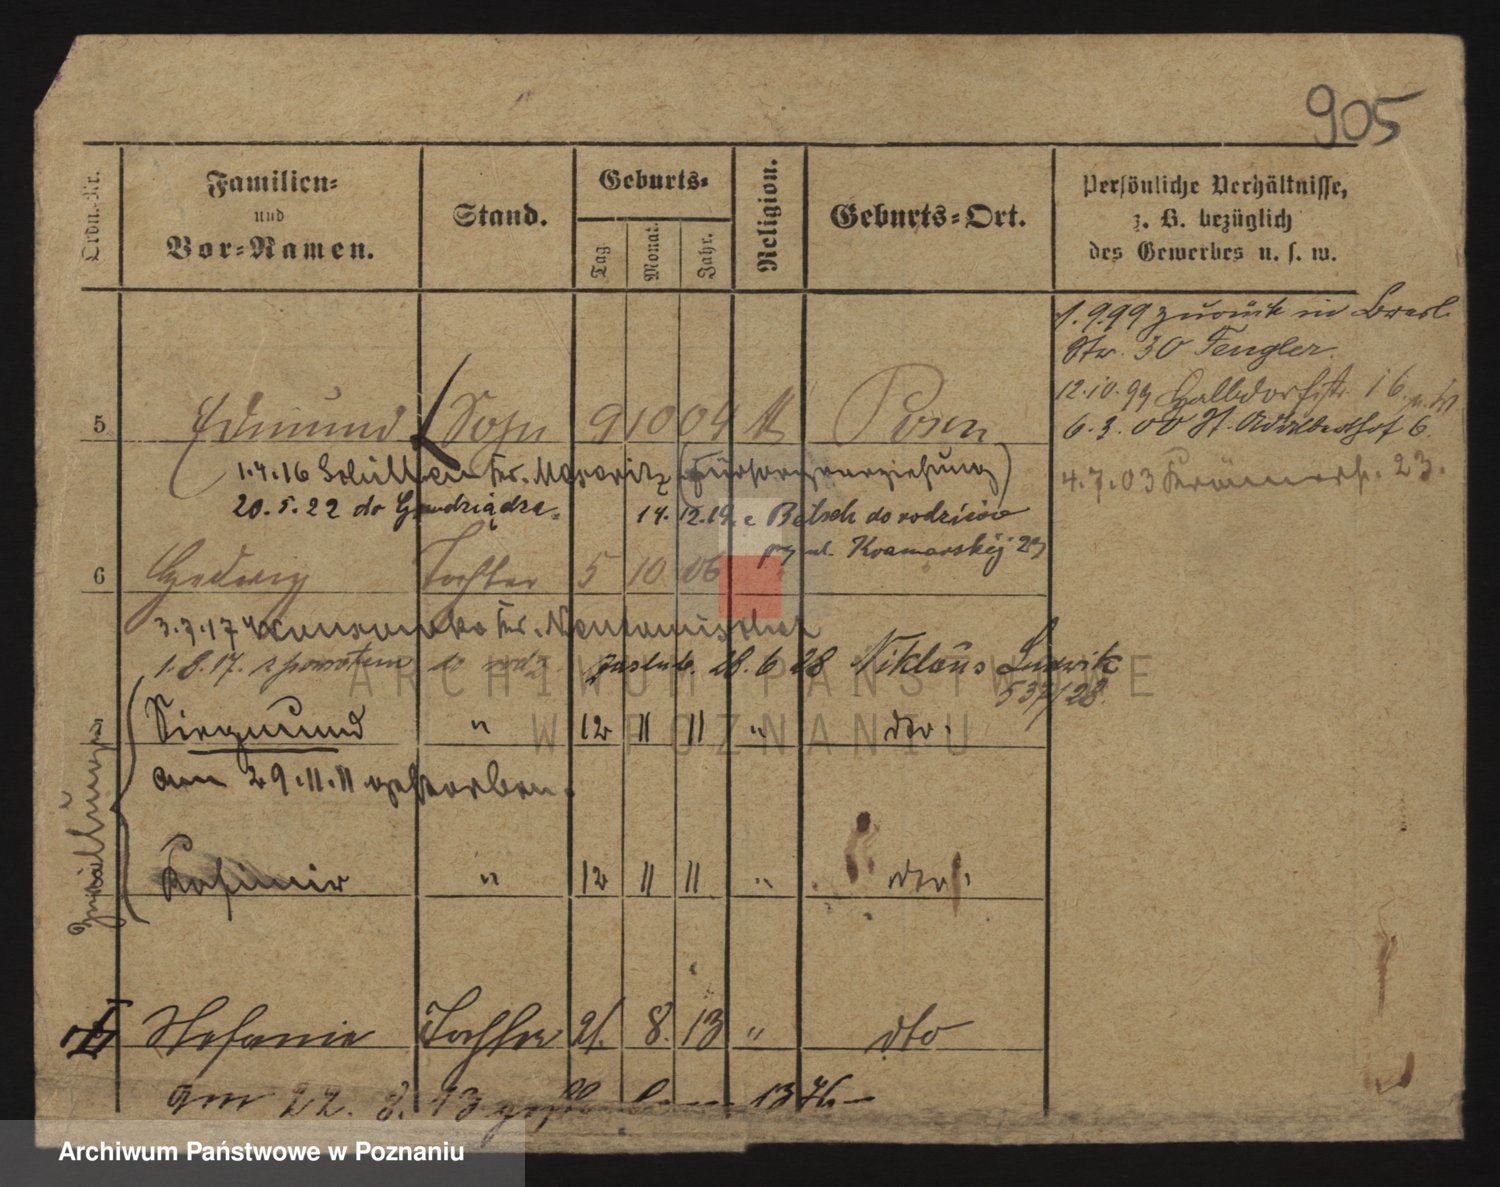 905
Ordn.-Nr.
Familien-
und
Vor-Namen.
Stand.
Geburts-
Tag
Monat.
Jahr.
Religion.
Geburts-Ort.
Persönliche Verhältnisse,
z. B. bezüglich
des Gewerbes u. s. w.
1. 9.99 zurück in Bresl.
Str. 30 Fengler.
12.10.99 Halbdorfstr. 16
6.3.00 St. Adalberthof 6.
4.7.03 Krämerstr. 23.
5 Edmund Sohn 9 10 04 Posen
1.4.16 (Fürsorgeerziehung)
20.5.22 do Grudziądza. 14.12.19 z do rodziców
przy ul. Kramarskiej 23
6 Hedwig Tochter 5 10 06 "
3.3.17
1.8.17. z powrotem zaślub. 28.6.28 Niklaus Ludwik
537/28
Zwillinge
Siegmund " 12 11 11 " dto.
am 29.11.11 gestorben.
Kasimir " 12 11 11 " dto.
Stefanie Tochter 21. 8. 13 " dto
am 22. 8. 13 1376
ARCHIWUM PAŃSTWOWE
W POZNANIU
Archiwum Państwowe w Poznaniu